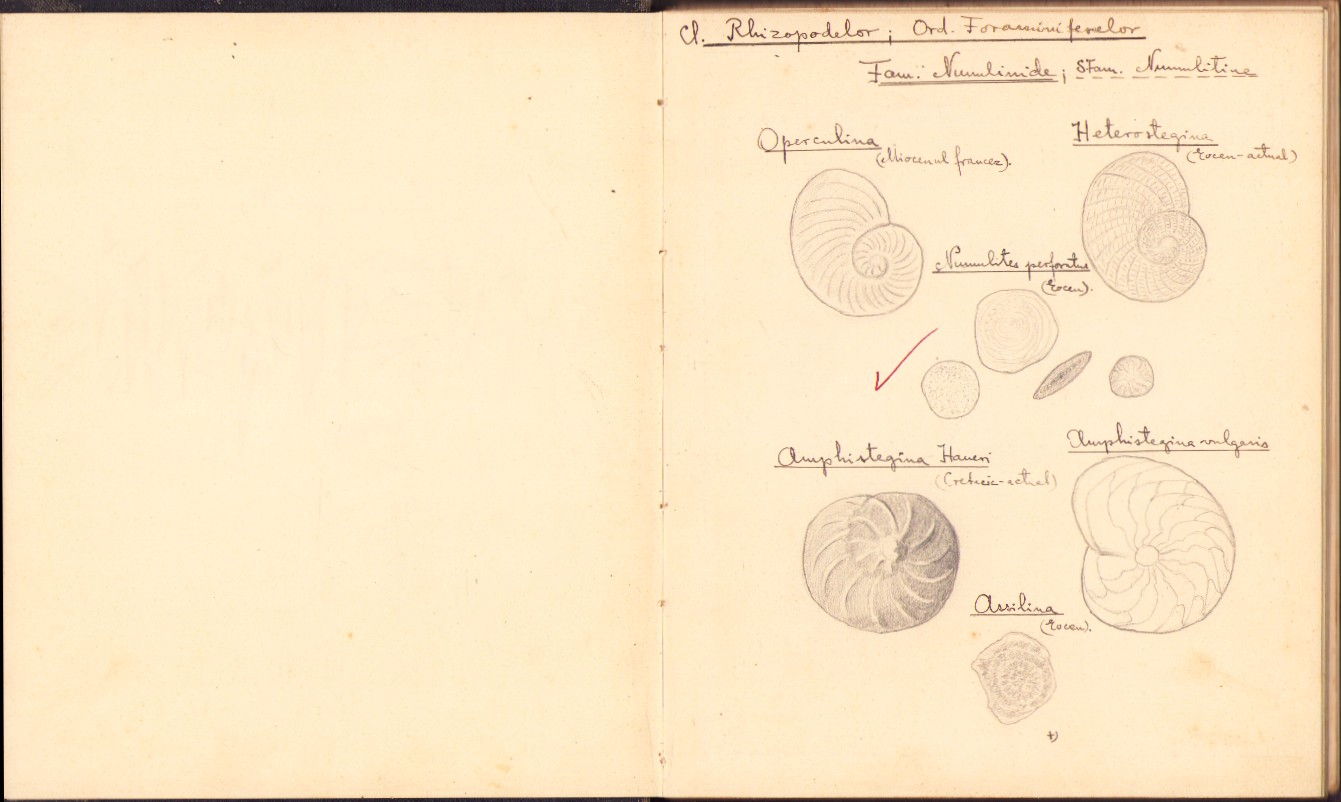 Cl. Rhizopodelor ; Ord. Foraminiferelor
Fam. Numulinide ; SFam. Numulitine
Operculina
(Miocenul francez).
Heterostegina
(Eocen-actual)
Numulites perforatus
(Eocen).
Amphistegina Haueri
(Cretacic-actual)
Amphistegina vulgaris
Assilina
(Eocen).
+)